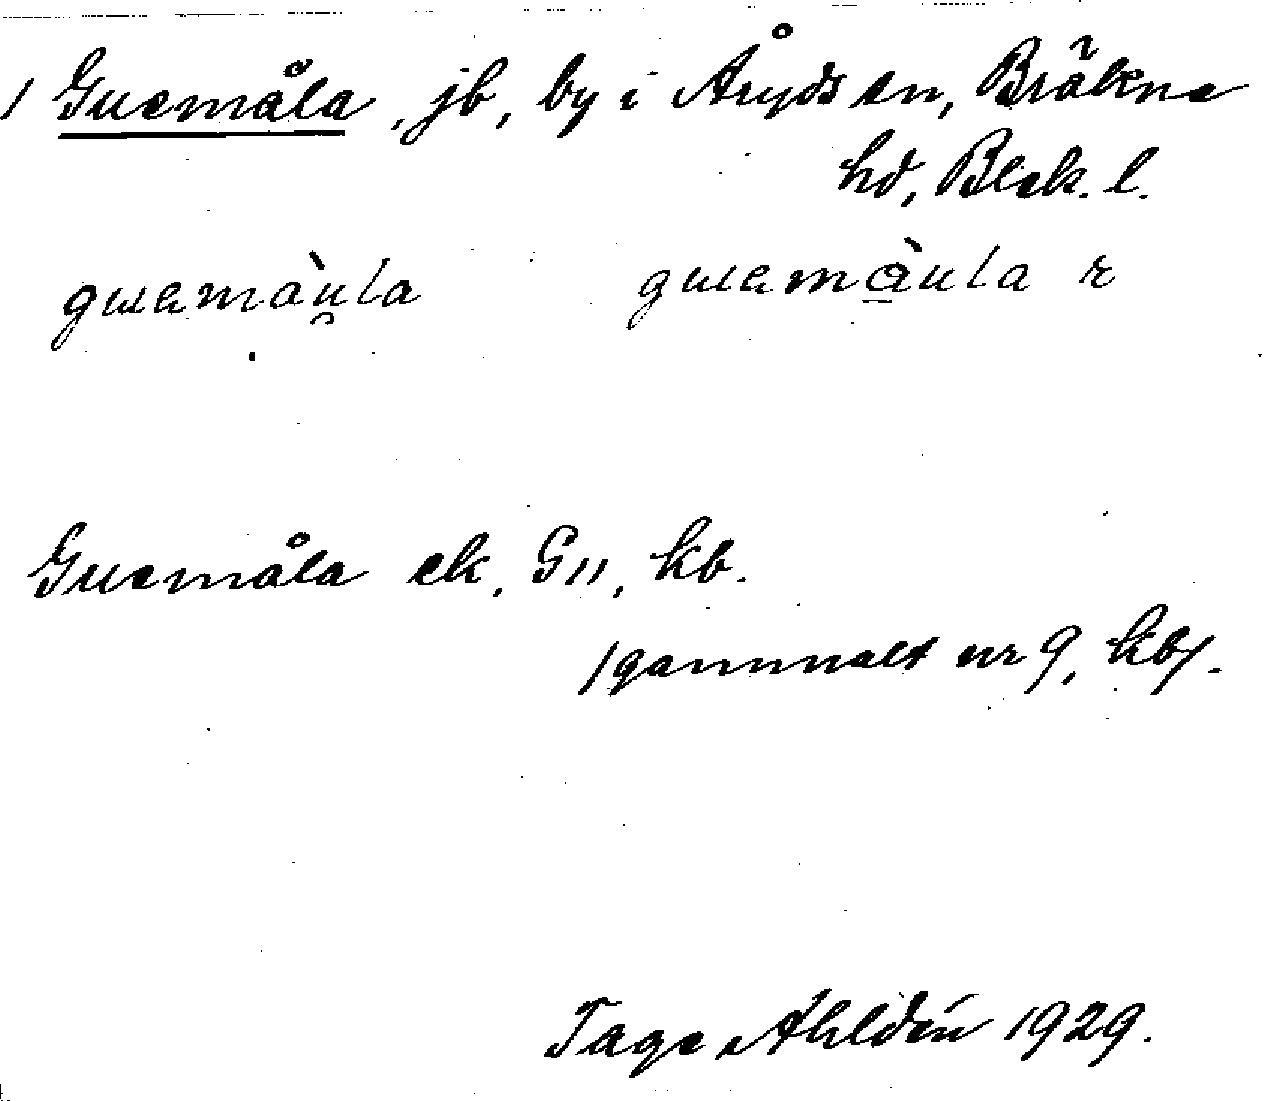 / Guemåla, jb, by i Åryds sn, Bräkne
hd, Blek. l.
guemàula guemàula r
Guemåla ek, G11, kb.
/gammalt nr 9, kb/.
Tage Ahldén 1929.